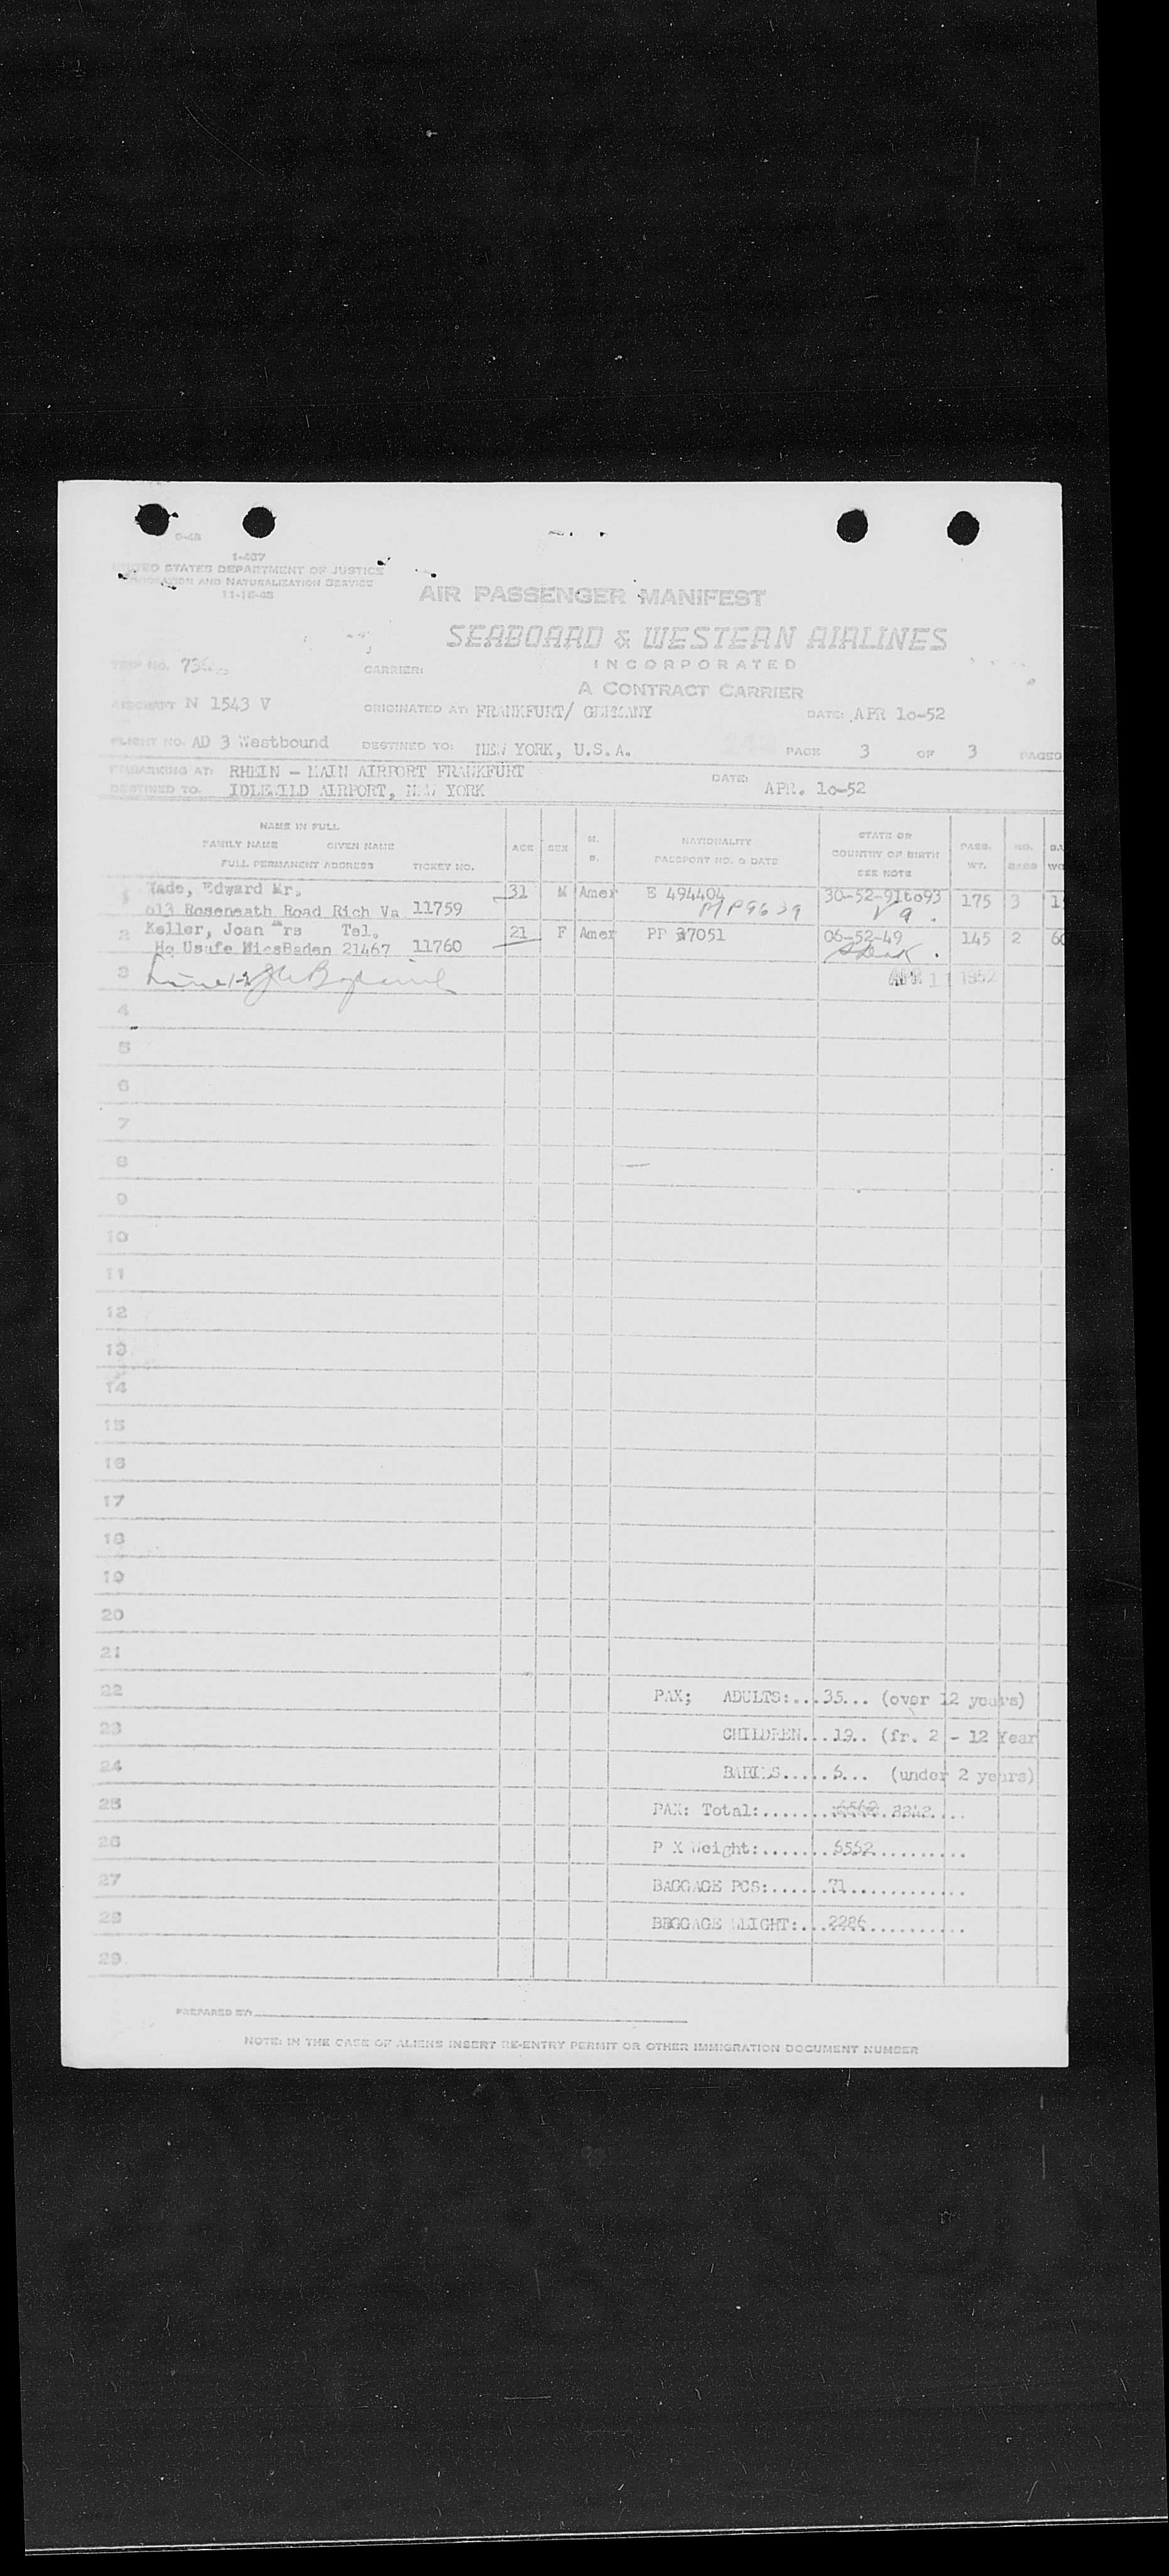 1-467
UNITED STATES DEPARTMENT OF JUSTICE
IMMIGRATION AND NATURALIZATION SERVICE
11-15-48
AIR PASSENGER MANIFEST
SEABOARD & WESTERN AIRLINES
INCORPORATED
A CONTRACT CARRIER
TRIP NO.
CARRIER:
AIRCRAFT N 1543 V
ORIGINATED AT: FRANKFURT/ GERMANY
DATE: APR 1o-52
FLIGHT NO. AD 3 Westbound
DESTINED TO: NEW YORK, U.S.A.
PAGE 3 OF 3 PAGES
EMBARKING AT: RHEIN - MAIN AIRPORT FRANKFURT
DATE: APR. 1o-52
DESTINED TO. IDLEWILD AIRPORT, NEW YORK
NAME IN FULL
FAMILY NAME GIVEN NAME
FULL PERMANENT ADDRESS TICKET NO.
AGE
SEX
M.
S.
NATIONALITY
PASSPORT NO. & DATE
STATE OR
COUNTRY OF BIRTH
SEE NOTE
PASS.
WT.
NO.
BAGS
1 Edward Mr. 31 M Amer E 494404 30-52-91to93 175 3
613 Roseneath Road Rich Va 11759 Va.
2 Keller, Joan Mrs Tel. 21 F Amer PP 37051 06-52-49 145 2 60
Hq Usafe WiesBaden 21467 11760
3 APR 11 1952
4
5
6
7
8
9
10
11
12
13
14
15
16
17
18
19
20
21
22 PAX; ADULTS:...35... (over 12 years)
23 CHILDREN...19.. (fr. 2 - 12 Year
24 BABIES.....6... (under 2 years)
25 PAX: Total:.......
26 P X Weight:.......6562..........
27 BAGGAGE PCS:......71............
28 BEGGAGE WEIGHT:...2286..........
29
PREPARED BY:
NOTE: IN THE CASE OF ALIENS INSERT RE-ENTRY PERMIT OR OTHER IMMIGRATION DOCUMENT NUMBER